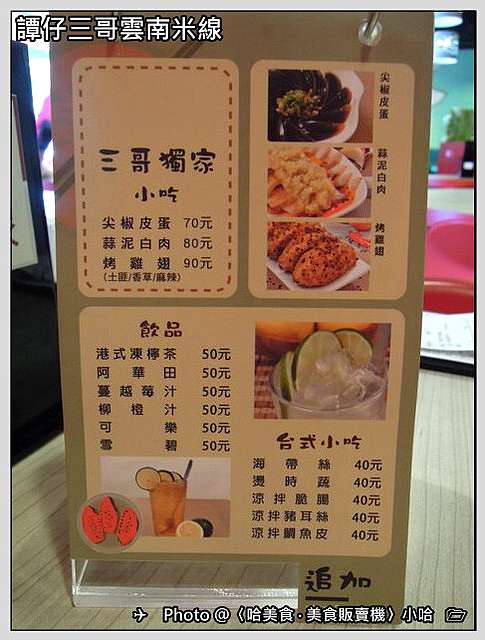 譚仔三哥雲南米線
三哥獨家
小吃
尖椒皮蛋 70元
蒜泥白肉 80元
烤雞翅 90元
(土匪/香草/麻辣)
尖椒皮蛋
蒜泥白肉
烤雞翅
飲品
港式凍檸茶 50元
阿華田 50元
蔓越莓汁 50元
柳橙汁 50元
可樂 50元
雪碧 50元
台式小吃
海帶絲 40元
燙時蔬 40元
涼拌脆腸 40元
涼拌豬耳絲 40元
涼拌鯛魚皮 40元
追加
Photo @〈哈美食·美食販賣機〉小哈